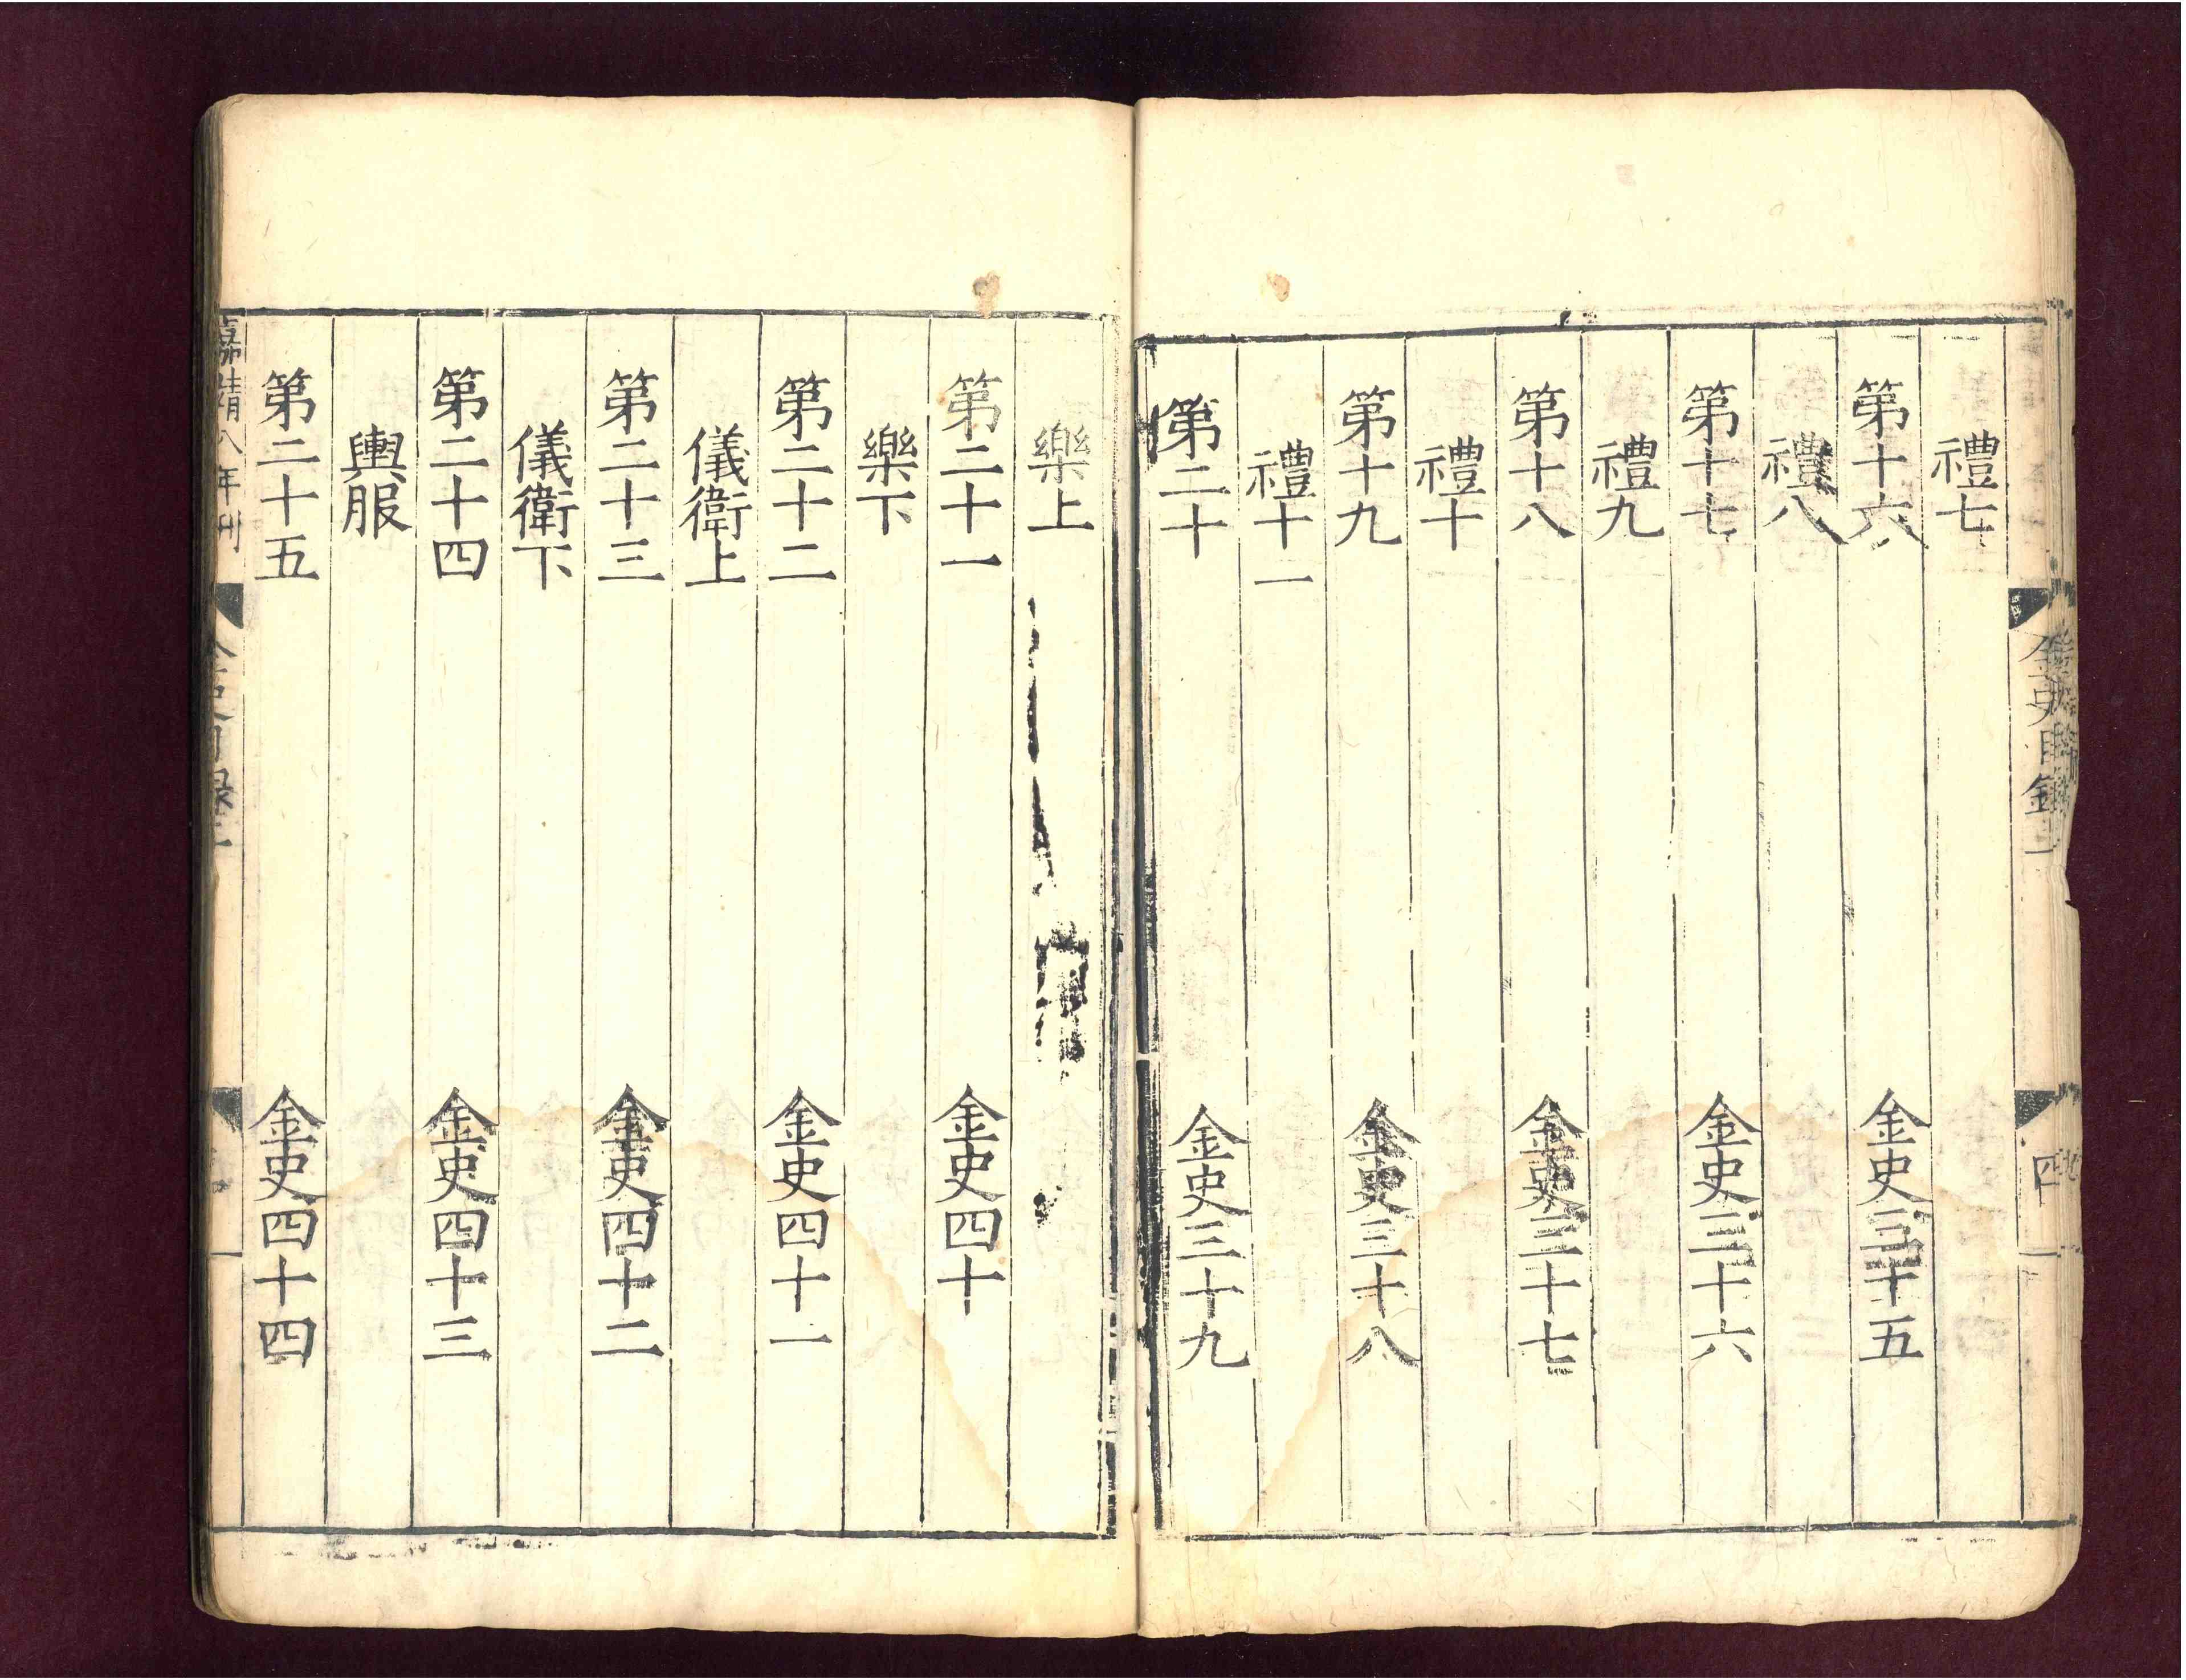 金史目錄
四
禮七
第十六 金史三十五
禮八
第十七 金史三十六
禮九
第十八 金史三十七
禮十
第十九 金史三十八
禮十一
第二十 金史三十九
樂上
第二十一 金史四十
樂下
第二十二 金史四十一
儀衛上
第二十三 金史四十二
儀衛下
第二十四 金史四十三
輿服
第二十五 金史四十四
嘉靖八年刊
金史目錄